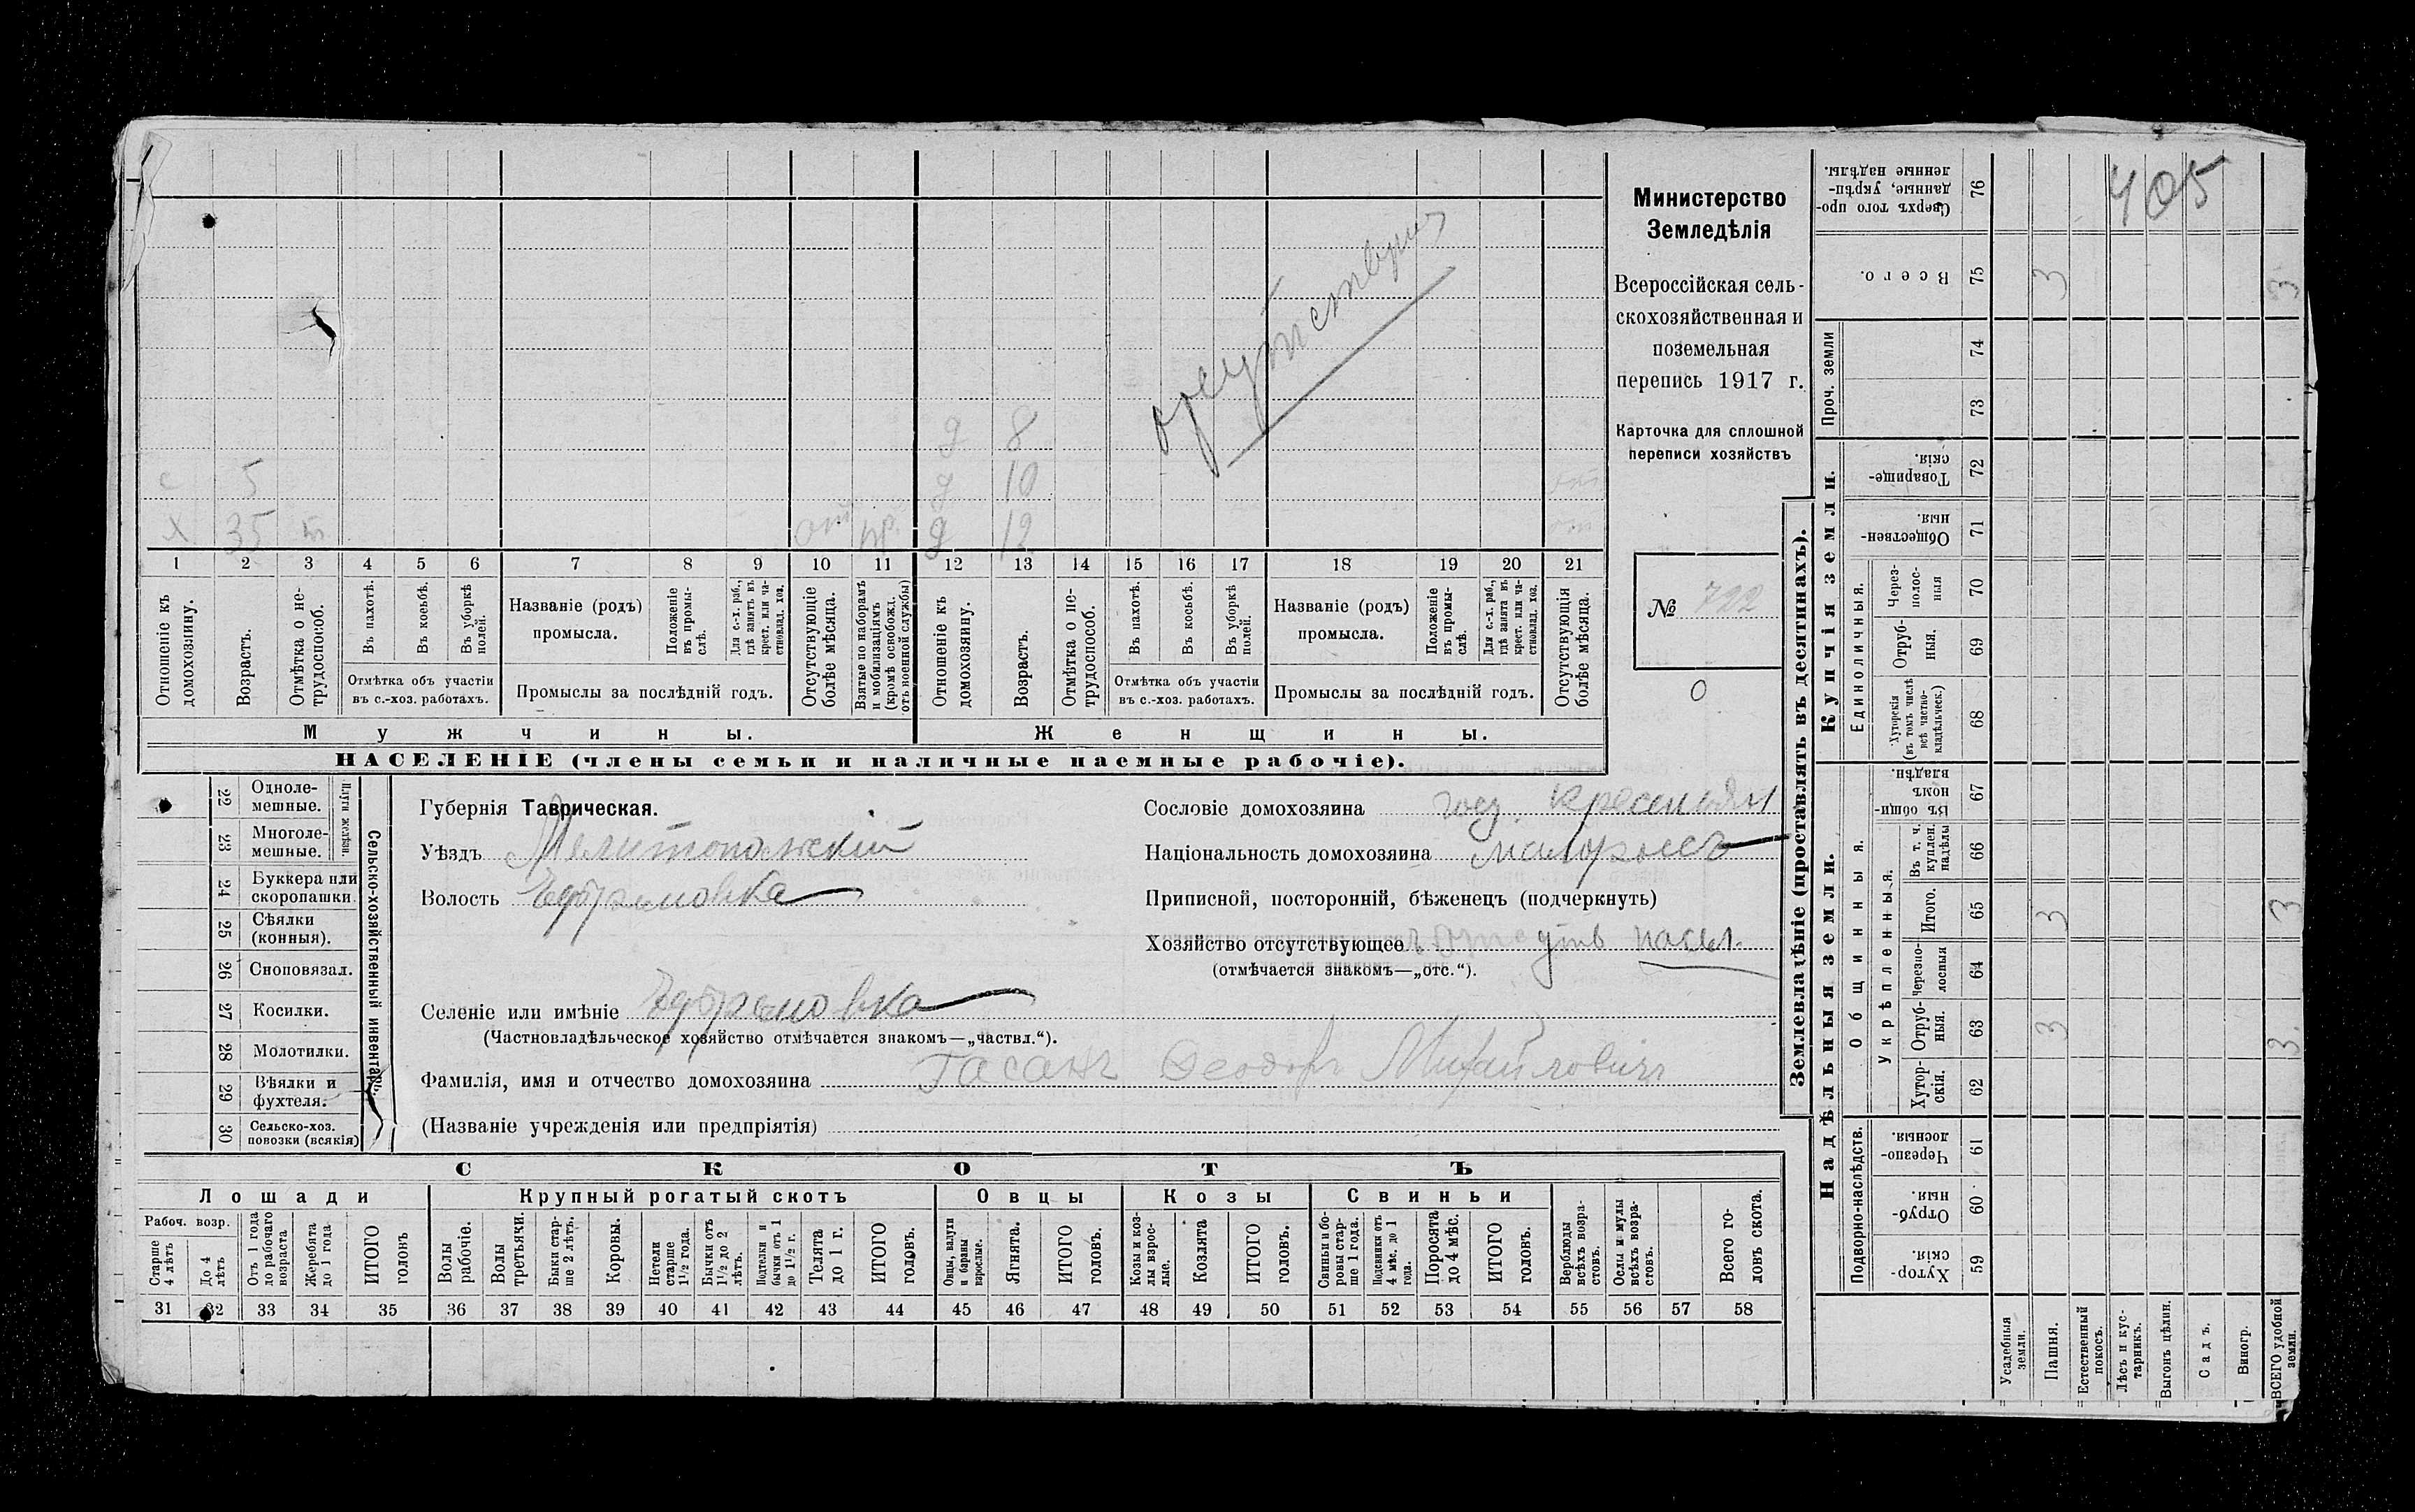 Министерство
Земледѣлія
Всероссійская сель-
скохозяйственная и
поземельная
перепись 1917 г.
Карточка для сплошной
переписи хозяйствъ
№ 722
0
405
д 8
с 5 д 10
х 35 д 12
1 2 3 4 5 6 7 8 9 10 11 12 13 14 15 16 17 18 19 20 21
Отношеніе къ домохозяину.
Возрастъ.
Отмѣтка о не-трудоспособ.
Въ пахотѣ.
Въ косьбѣ.
Въ уборкѣ полей.
Отмѣтка объ участіи
въ с.-хоз. работахъ.
Названіе (родъ)
промысла.
Положеніе въ промы-слѣ.
Для с.-х. раб., гдѣ занятъ въ крест. или ча-стновлад. хоз.
Промыслы за послѣдній годъ.
Отсутствующіе болѣе мѣсяца.
Взятые по наборамъ и мобилизаціямъ (кромѣ освобожд. отъ военной службы)
Отношеніе къ домохозяину.
Возрастъ.
Отмѣтка о не-трудоспособ.
Въ пахотѣ.
Въ косьбѣ.
Въ уборкѣ полей.
Отмѣтка объ участіи
въ с.-хоз. работахъ.
Названіе (родъ)
промысла.
Положеніе въ промы-слѣ.
Для с.-х. раб., гдѣ занята въ крест. или ча-стновлад. хоз.
Промыслы за послѣдній годъ.
Отсутствующія болѣе мѣсяца.
Мужчины. Женщины.
НАСЕЛЕНІЕ (члены семьи и наличные наемные рабочіе).
Сельско-хозяйственный инвентарь.
Плуги желѣзн.
22 Однолемешные.
23 Многолемешные.
24 Буккера или скоропашки
25 Сѣялки (конныя).
26 Сноповязал.
27 Косилки.
28 Молотилки.
29 Вѣялки и фухтеля.
30 Сельско-хоз. повозки (всякія)
Губернія Таврическая.
Уѣздъ Мелитопольскій
Волость Ефремовка
Селеніе или имѣніе Ефремовка
(Частновладѣльческое хозяйство отмѣчается знакомъ—„частвл.“).
Сословіе домохозяина
Національность домохозяина малороссъ
Приписной, посторонній, бѣженецъ (подчеркнуть)
Хозяйство отсутствующее
(отмѣчается знакомъ—„отс.“).
Фамилія, имя и отчество домохозяина Гасанъ Ѳеодоръ Михайловичъ
(Названіе учрежденія или предпріятія)
СКОТЪ
Лошади Крупный рогатый скотъ Овцы Козы Свиньи
Рабоч. возр.
Старше 4 лѣтъ
До 4 лѣтъ
Отъ 1 года до рабочаго возраста
Жеребята до 1 года
ИТОГО головъ
Волы рабочіе.
Волы третьяки.
Быки стар-ше 2 лѣтъ.
Коровы.
Нетели старше 1½ года.
Бычки отъ 1½ до 2 лѣтъ.
Подтелки и бычки отъ 1 до 1½ г.
Телята до 1 г.
ИТОГО головъ.
Овцы, валухи и бараны взрослые.
Ягнята.
ИТОГО головъ.
Козы и коз-лы взрос-лые.
Козлята
ИТОГО головъ.
Свиньи и бо-ровы стар-ше 1 года.
Подсвинки отъ 4 мѣс. до 1 года.
Поросята до 4 мѣс.
ИТОГО головъ.
Верблюды всѣхъ возра-стовъ.
Ослы и мулы всѣхъ возра-стовъ.
Всего го-ловъ скота.
31 32 33 34 35 36 37 38 39 40 41 42 43 44 45 46 47 48 49 50 51 52 53 54 55 56 57 58
Землевладѣніе (проставлять въ десятинахъ).
Надѣльныя земли. Купчія земли.
Подворно-наслѣдств.
Общинныя.
Укрѣпленныя.
Единоличныя.
Проч. земли
Сверхъ того про-данные, укрѣп-ленные надѣлы. 76
Всего. 75 3 3
74
73
Товарище-скія. 72
Обществен-ныя. 71
Через-полос-ныя 70
Отруб-ныя. 69
Хуторскія (въ томъ числѣ всѣ частно-владѣльческ.) 68
Въ общин-номъ владѣн. 67
Въ т. ч. куплен. надѣлы 66
Итого. 65 3 3
Черезпо-лосныя 64
Отруб-ныя. 63 3 3.
Хутор-скія. 62
Черезпо-лосныя. 61
Отруб-ныя. 60
Хутор-скія. 59
Усадебныя земли.
Пашня.
Естественный покосъ.
Лѣсъ и кус-тарникъ.
Выгонъ цѣлин.
Садъ.
Виногр.
ВСЕГО удобной земли.